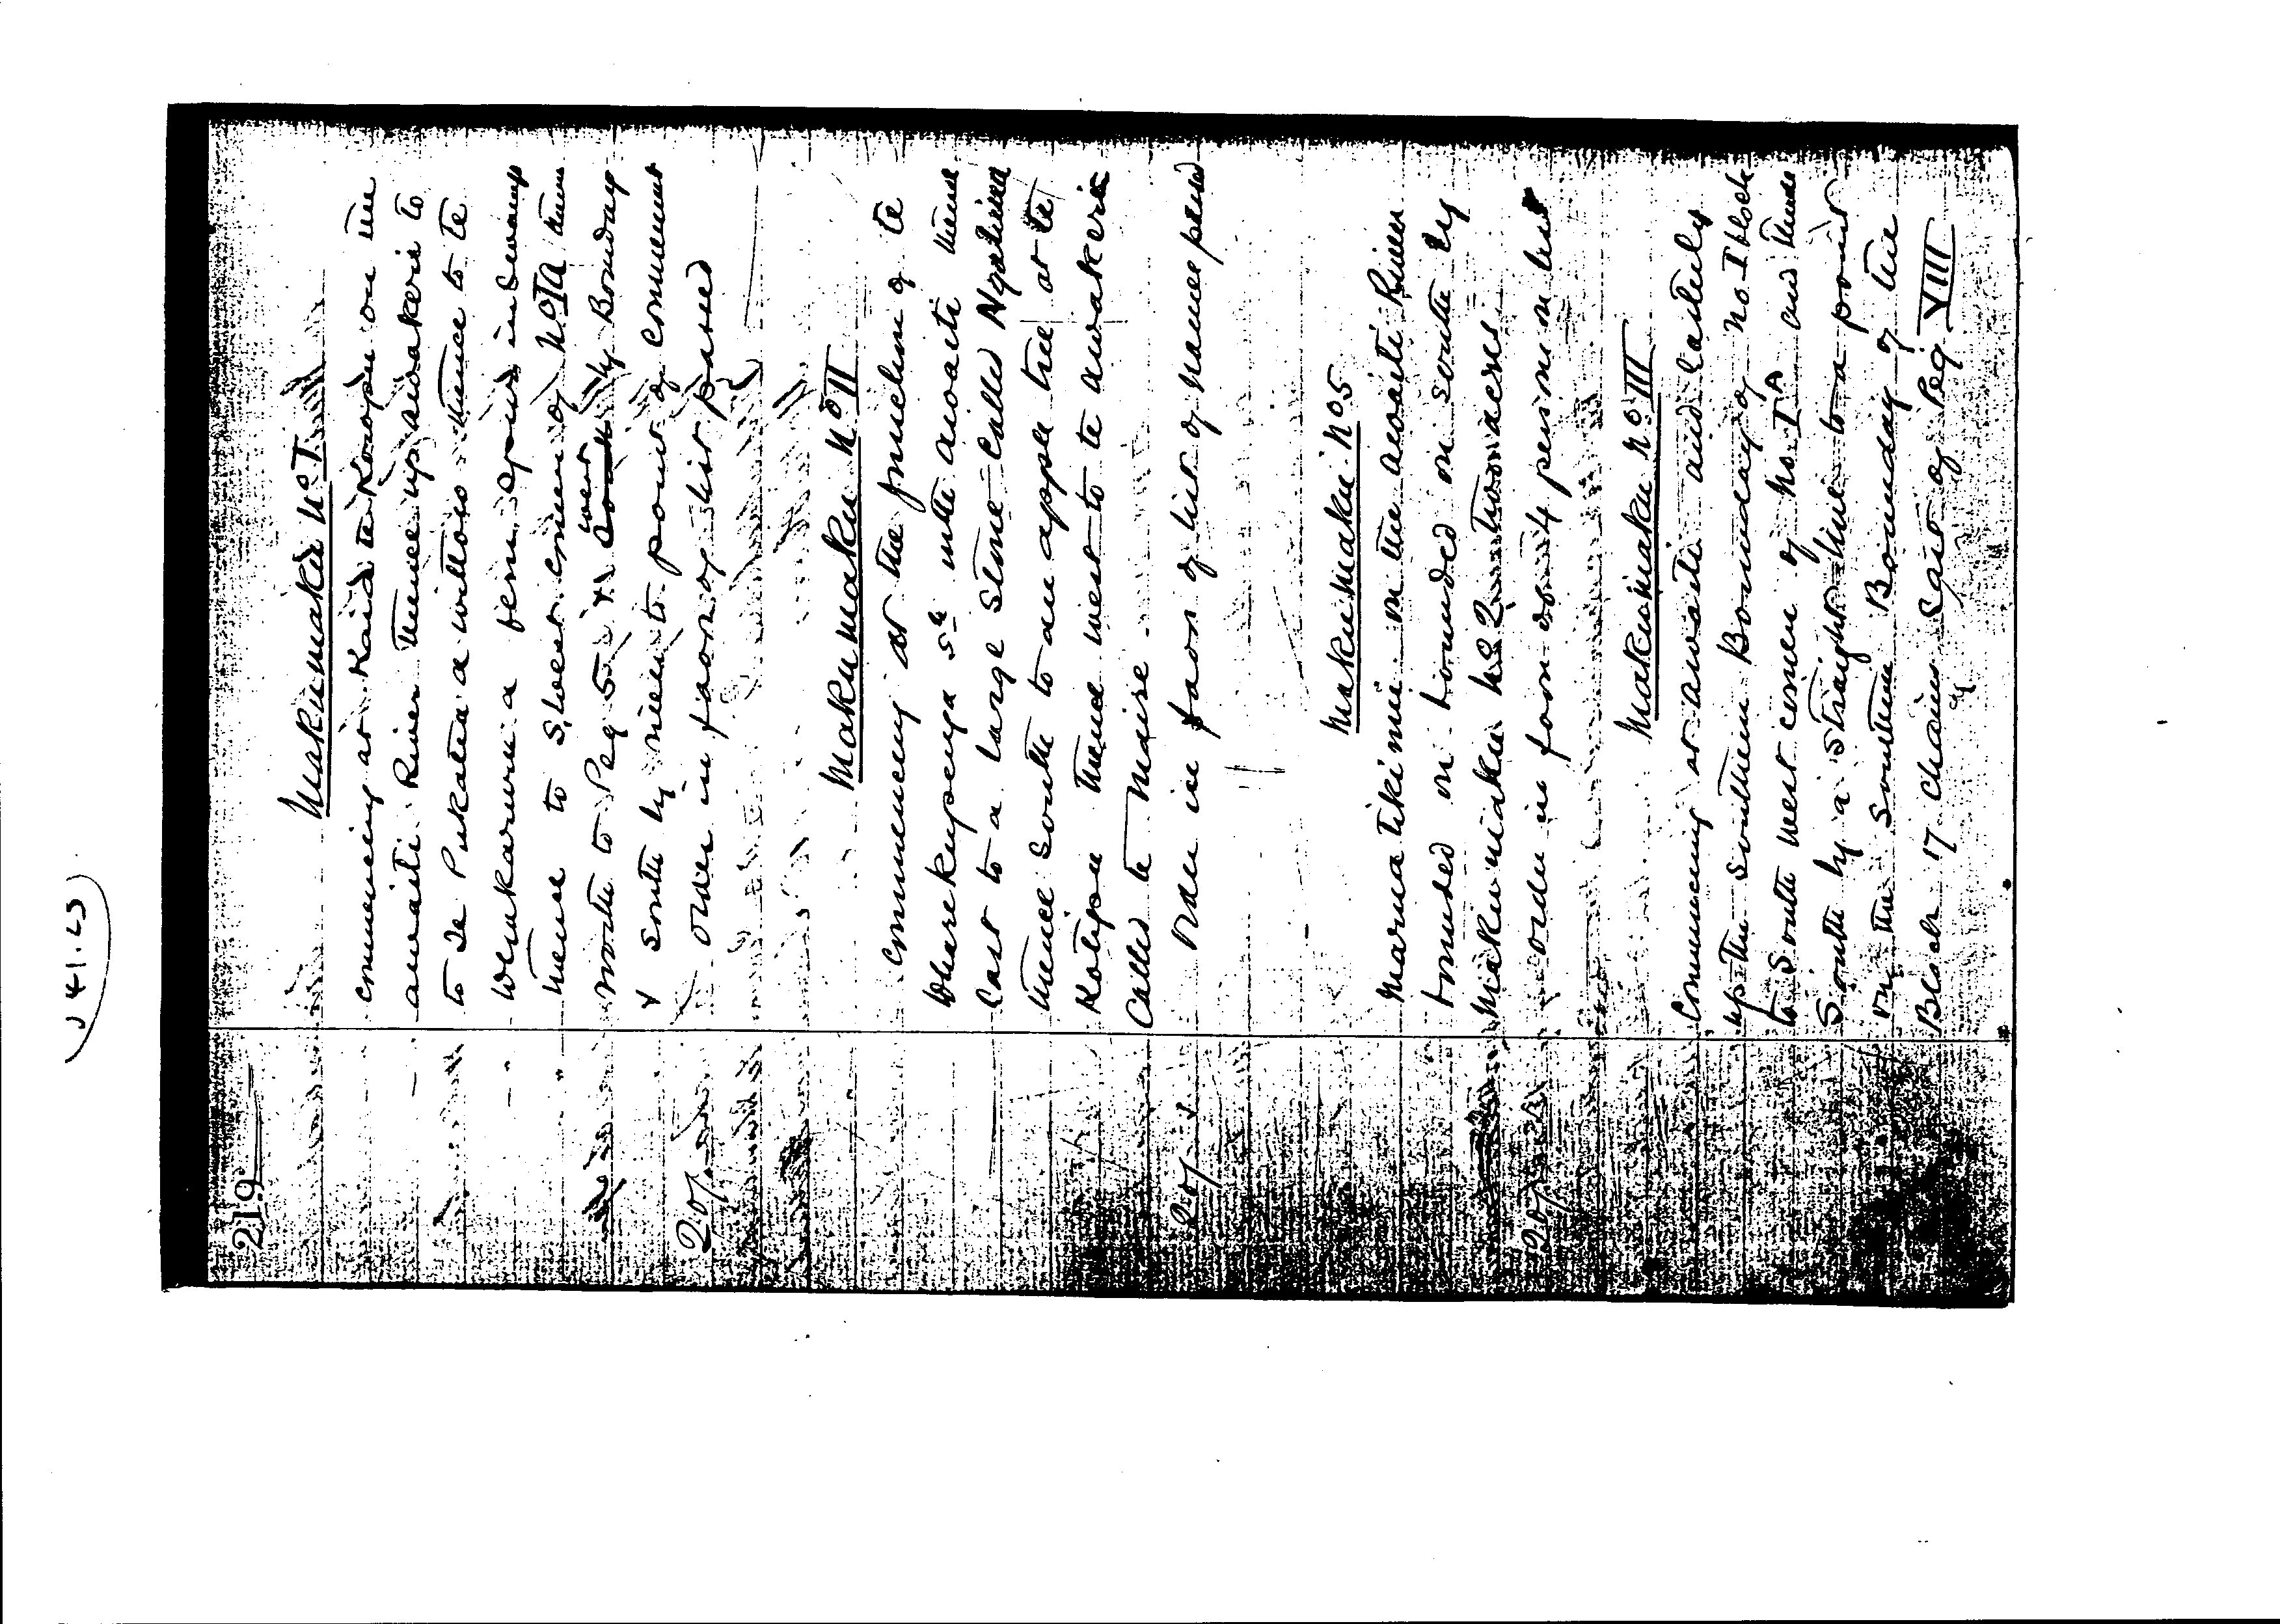 219
Makumaku No I
Commencing at Kaid te Koropu on the
awaiti River thence up awakeri to
to Te Pukatea a willow thence to te
Wenkaruru a fern spur in Swamp
thence to S. West corner of No IA thence
north to Peg 5 & west by Boundary
& South by river to point of Commencement
20/ Order in favor of list passed
Makumaku No II
Commencing at the junction of te
Wharekupenga Sm with awaiti thence
East to a large Stone Called Ngatirua
thence South to an apple tree at te
Kotipu thence west to te awakeri
Called te Maire
20/ Order in favor of list of names passed
Makumaku No 5
Maruatikimi on the awaiti River
bounded on bounded on South by
Makumaku No 2 Two acres
20/ order in favor of 4 persons in list
Makumaku No III
Commencing at awaiti and Easterly
up the Southern Boundary of No. I block
to South west corner of No. IA and thence
South by a straight line to a point
on the Southern Boundary of the
Block 17 Chains East of Peg VIII
J 41.L5